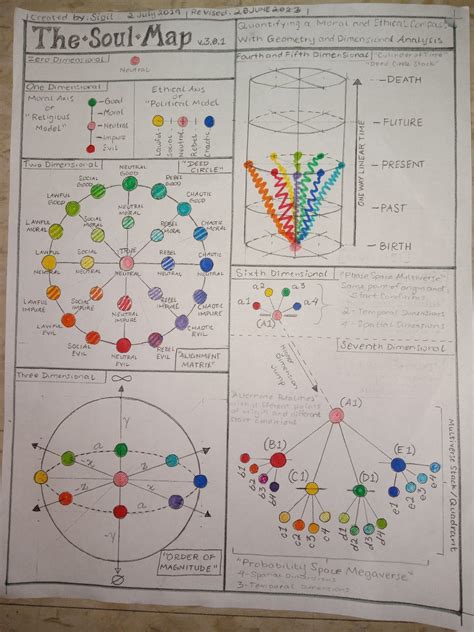 Created by: Sigil 2 July 2019 | Revised: 28 JUNE 2023
The • Soul • Map v.3.0.1
Quantifying a Moral and Ethical Compass
With Geometry and Dimensional Analysis
Zero Dimensional
Neutral
One Dimensional
Moral Axis
or
"Religious
Model"
Good
Moral
Neutral
Impure
Evil
Ethical Axis
or
"Political Model"
Lawful
Social
Neutral
Rebel
Chaotic
Two Dimensional
"DEED
CIRCLE"
NEUTRAL
GOOD
SOCIAL
GOOD
REBEL
GOOD
LAWFUL
GOOD
CHAOTIC
GOOD
NEUTRAL
MORAL
SOCIAL
MORAL
REBEL
MORAL
LAWFUL
MORAL
CHAOTIC
MORAL
LAWFUL
NEUTRAL
SOCIAL
NEUTRAL
TRUE
NEUTRAL
REBEL
NEUTRAL
CHAOTIC
NEUTRAL
LAWFUL
IMPURE
SOCIAL
IMPURE
NEUTRAL
IMPURE
REBEL
IMPURE
CHAOTIC
IMPURE
LAWFUL
EVIL
CHAOTIC
EVIL
SOCIAL
EVIL
NEUTRAL
EVIL
REBEL
EVIL
"ALIGNMENT
MATRIX"
Three Dimensional
∞
y
a
z
x
x
z
a
-y
Ø
"ORDER OF
MAGNITUDE"
Fourth and Fifth Dimensional
"Cylinder of Time"
"Deed Circle Stack"
DEATH
FUTURE
PRESENT
PAST
BIRTH
ONE WAY LINEAR TIME
Sixth Dimensional
"Phase Space Multiverse"
Same point of origin and
Start Conditions
a1
a2
a3
a4
(A1)
2 - Temporal Dimensions
4 - Spatial Dimensions
Seventh Dimensional
Jump
"Alternate Realities"
with different points
of origin and different
start conditions
(A1)
(B1)
(C1)
(D1)
(E1)
b4
b3
b2
b1
c1
c2
c3
c4
d1
d2
d3
d4
e1
e2
e3
e4
Multiverse Stack/Quadrant
"Probability Space Megaverse"
4 - Spatial Dimensions
3 - Temporal Dimensions